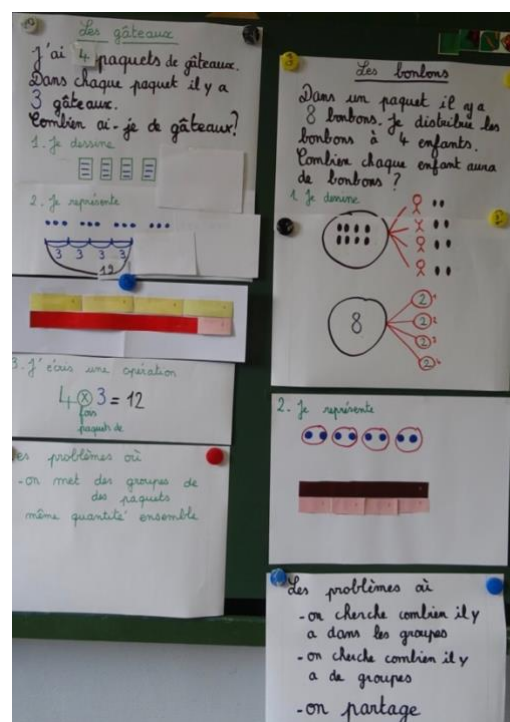 Les gâteaux
J'ai 4 paquets de gâteaux.
Dans chaque paquet il y a
3 gâteaux.
Combien ai-je de gâteaux?
1. Je dessine
2. Je représente
3 3 3 3
12
3. J'écris une opération
4 x 3 = 12
fois
paquets de
es problèmes où
- on met des groupes de
des paquets
même quantité ensemble
Les bonbons
Dans un paquet il y a
8 bonbons. Je distribue les
bonbons à 4 enfants.
Combien chaque enfant aura
de bonbons ?
1. Je dessine
8
2 1
2 2
2 3
2 4
2. Je représente
Les problèmes où
- on cherche combien il y
a dans les groupes
- on cherche combien il y
a de groupes
- on partage